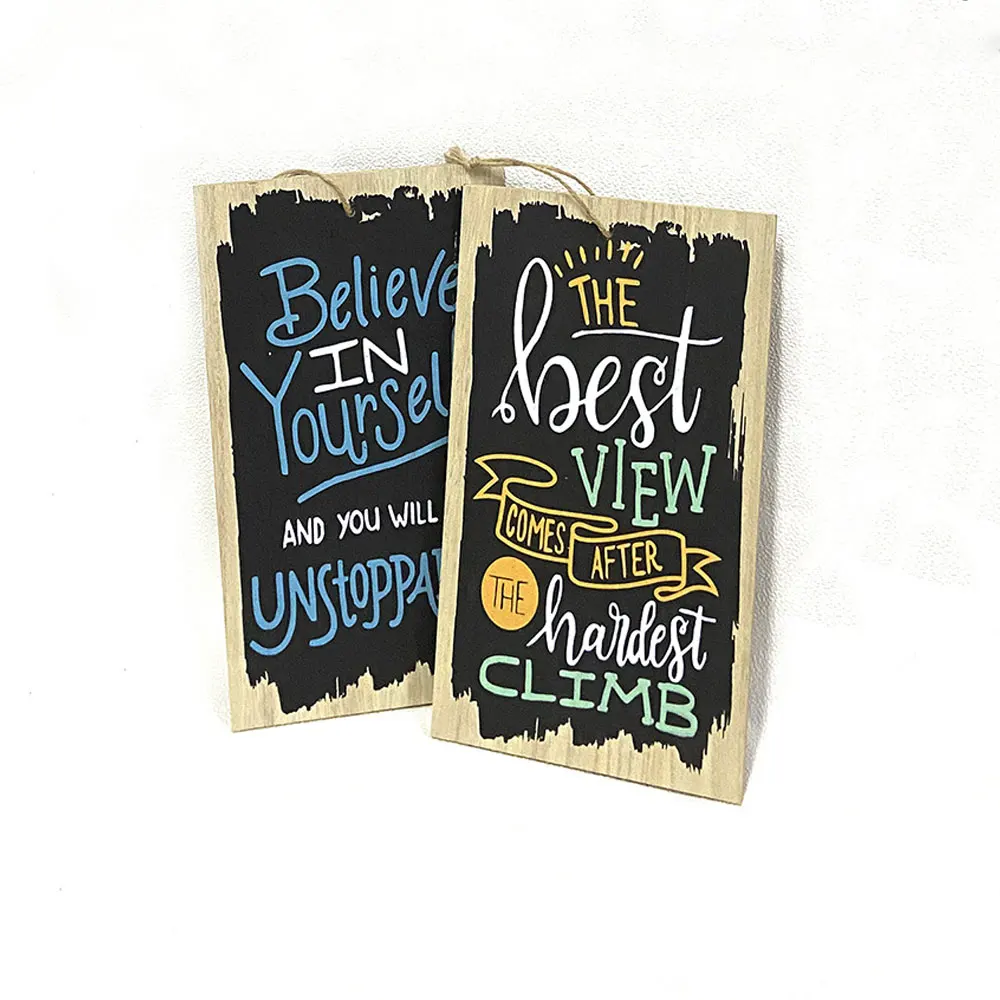 Believe
IN
Yoursel
AND YOU WILL
UNSTOPPA
THE
best
VIEW
COMES
AFTER
THE
hardest
CLIMB